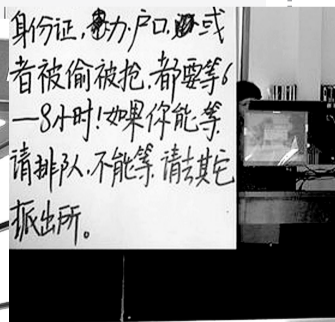 身份证，办户口，或
者被偷被抢，都要等6
—8小时！如果你能等，
请排队，不能等，请去其它
派出所。